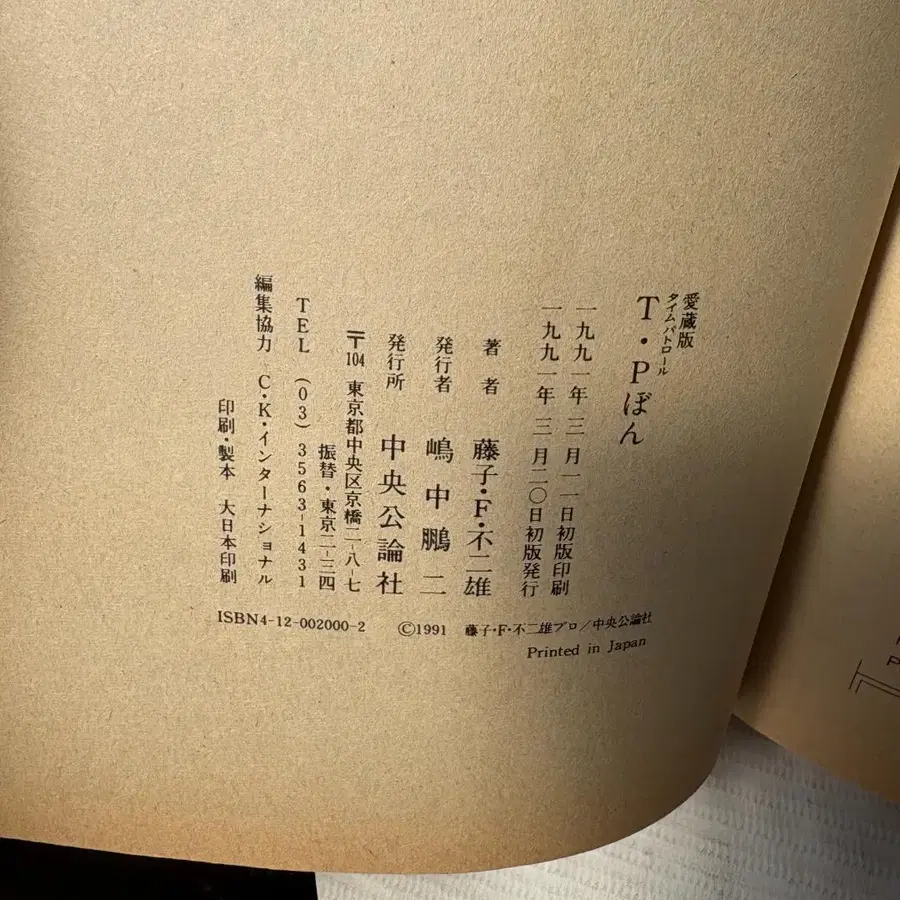 愛蔵版
タイムパトロール
T・Pぼん
一九九一年 三 月一一日初版印刷
一九九一年 三 月二〇日初版発行
著 者 藤子・F・不二雄
発行者 嶋中鵬二
発行所 中央公論社
〒104 東京都中央区京橋二-八-七
振替・東京二-三四
TEL (03) 3563-1431
編集協力 C・K・インターナショナル
印刷・製本 大日本印刷
ISBN4-12-002000-2 ©1991 藤子・F・不二雄プロ/中央公論社
Printed in Japan